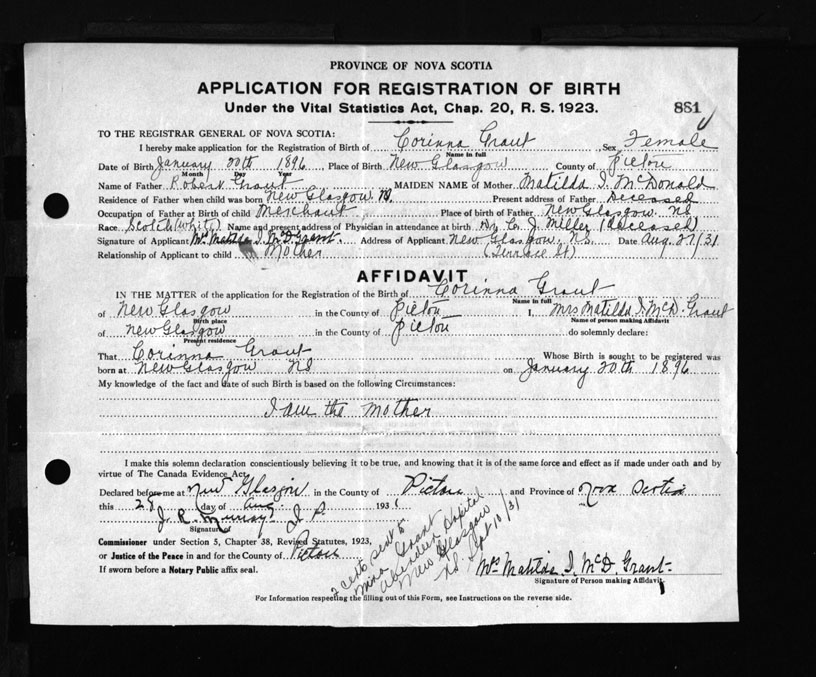 PROVINCE OF NOVA SCOTIA
APPLICATION FOR REGISTRATION OF BIRTH
Under the Vital Statistics Act, Chap. 20, R. S. 1923.
881
TO THE REGISTRAR GENERAL OF NOVA SCOTIA:
I hereby make application for the Registration of Birth of Corinna Grant Sex Female
Name in full
Date of Birth January 20th 1896 Place of Birth New Glasgow County of Pictou
Month Day Year
Name of Father Robert Grant MAIDEN NAME of Mother Matilda I. McDonald
Residence of Father when child was born New Glasgow NS. Present address of Father Deceased
Occupation of Father at Birth of child Merchant Place of birth of Father New Glasgow. NS
Race Scotch (white) Name and present address of Physician in attendance at birth Dr. C. J. Miller (deceased)
Signature of Applicant Mrs Matilda I. McD. Grant. Address of Applicant New Glasgow, N.S. Date Aug. 27/31
Relationship of Applicant to child Mother (Terrace St)
AFFIDAVIT
IN THE MATTER of the application for the Registration of the Birth of Corinna Grant
Name in full
of New Glasgow in the County of Pictou I, Mrs Matilda I. McD. Grant
Birth place Name of person making Affidavit
of New Glasgow in the County of Pictou do solemnly declare:
Present residence
That Corinna Grant Whose Birth is sought to be registered was
born at New Glasgow NS on January 20th 1896
My knowledge of the fact and date of such Birth is based on the following Circumstances:
I am the mother
I make this solemn declaration conscientiously believing it to be true, and knowing that it is of the same force and effect as if made under oath and by
virtue of The Canada Evidence Act.
Declared before me at New Glasgow in the County of Pictou and Province of Nova Scotia
this 28 day of Aug. 1931
J. R. Murray J. P.
Signature of
Commissioner under Section 5, Chapter 38, Revised Statutes, 1923,
or Justice of the Peace in and for the County of Pictou
If sworn before a Notary Public affix seal.
2 certs sent to
Grant
Aberdeen Hospital
New Glasgow
NS. Sept 10/31
Mrs Matilda I. McD. Grant
Signature of Person making Affidavit.
For Information respecting the filling out of this Form, see Instructions on the reverse side.